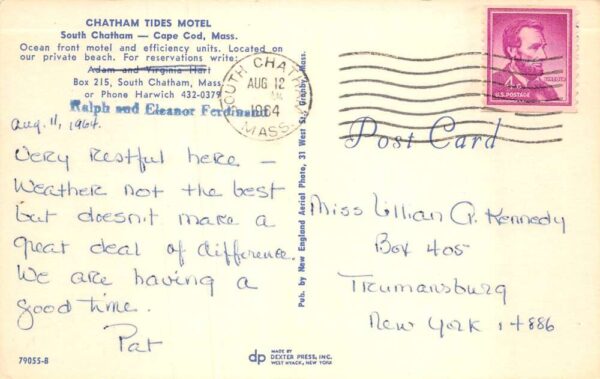 CHATHAM TIDES MOTEL
South Chatham — Cape Cod, Mass.
Ocean front motel and efficiency units. Located on
our private beach. For reservations write:
Adam and Virginia Harl
Box 215, South Chatham, Mass.
or Phone Harwich 432-0379
Ralph and Eleanor Ferdinand
Aug. 11, 1964.
Very restful here —
Weather not the best
but doesn't make a
great deal of difference.
We are having a
good time.
Pat
79055-B
SOUTH CHATHAM
AUG 12
1964
MASS.
Pub. by New England Aerial Photo, 31 West St., Granby, Mass.
MADE BY
dp DEXTER PRESS, INC.
WEST NYACK, NEW YORK
4¢
U.S. POSTAGE
Post Card
Miss Lillian A. Kennedy
Box 405
Trumansburg
New York 14886